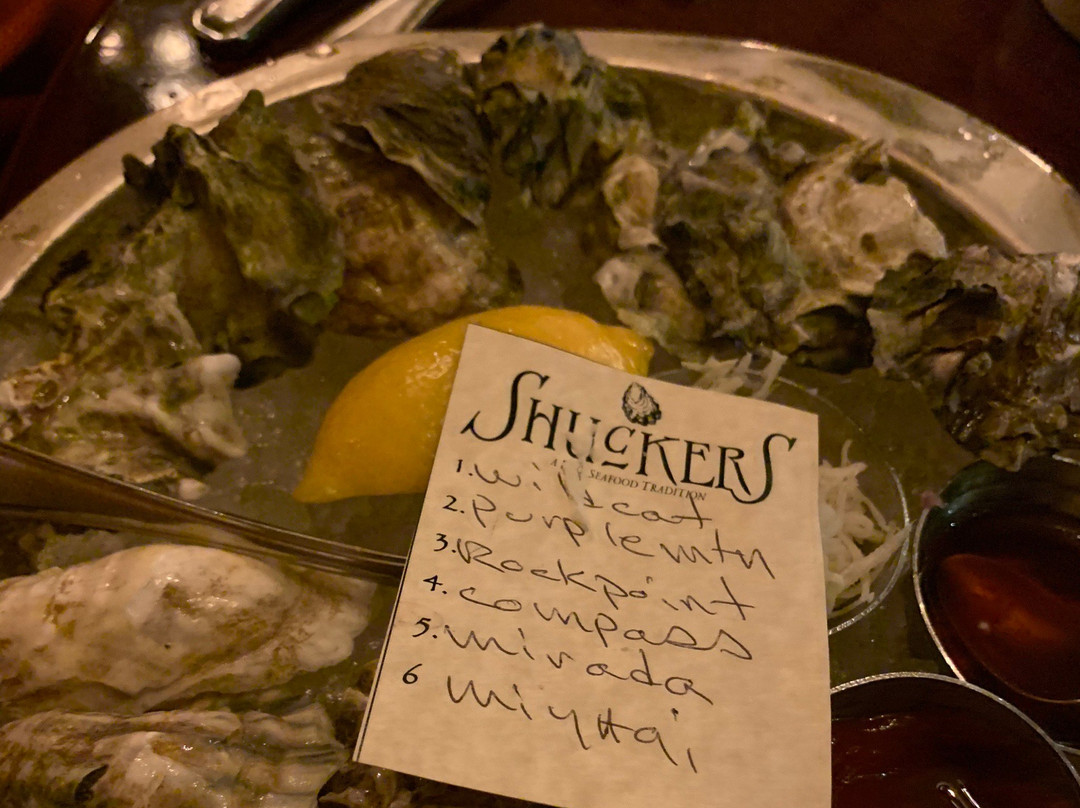 SHUCKERS
SEAFOOD TRADITION
1. wildcat
2. Purple mtn
3. Rockpoint
4. compass
5. mirada
6 miyHai